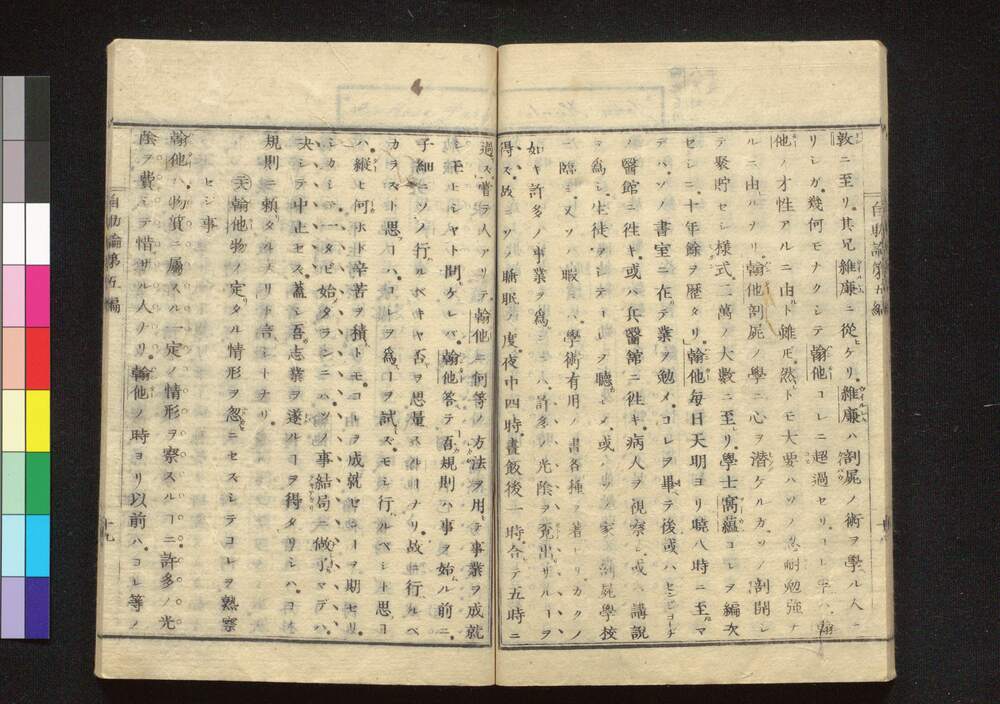 自助論第五編
敦ニ至リ。其兄維廉ニ從ヒケリ。維廉ハ剖屍ノ術ヲ學ル人ナ
リシガ。幾何モナクシテ翰他コレニ超過セリ。
他ノ才性アルニ由ト雖𪜈。然レトモ大要ハソノ忍耐勉強ナ
ルニ由ハナリ。翰他剖屍ノ學ニ心ヲ潜ケルカ。ソノ剖開シ
テ聚貯セシ様式二萬ノ大數ニ至リ。學士窩蘊コレヲ編次
セシニ十年餘ヲ歴タリ。」翰他毎日天明ヨリ曉八時ニ至マ
デハ。ソノ書室ニ在テ業ヲ勉メ。コレヲ畢テ後。或ハ
ノ醫館ニ徃キ。或ハ兵醫館ニ徃キ。病人ヲ視察シ。或ハ講説
ヲ爲シ。生徒ヲシテコレヲ聽シメ。或ハソノ家ノ剖屍學校
ニ臨ミ。又ソノ暇ニハ學術有用ノ書各種ヲ著ハセリ。カクノ
如キ許多ノ事業ヲ爲シニハ。許多ノ光陰ヲ覓出ザルヿヲ
得ズ。故ニソノ睡眠ノ度。夜中四時。晝飯後一時。合テ五時ニ
過ズ。嘗テ人アリテ翰他ニ何等ノ方法ヲ用テ事業ヲ成就
シモトシヤト問ケレバ。翰他答テ吾規則ハ事ヲ始ル前ニ
子細ニソノ行ルベキヤ否ヲ思量スルヿナリ。故ニ行ルベ
カラズト思ヘハ。コレヲ爲ヿヲ試ズ。モシ行ルベシト思ヨ
ハ。縱ヒ何ホド辛苦ヲ積トモ。コレヲ成就セシヿヲ期セリ。
シカシテ一タビ始タランニハ。ソノ事結局ニ做了マデハ。
决シテ中止セズ。蓋シ吾志業ヲ遂ルヿヲ得タリシハ。コノ
規則ニ頼タルナリト言シトナリ。
翰他物ノ定タル情形ヲ忽ニセズシテコレヲ熟察
セシ事
翰他ハ物質ニ屬スル一定ノ情形ヲ察スルヿニ。許多ノ光
陰ヲ費シテ惜ザル人ナリ。翰他ノ時ヨリ以前ハ。コレ等ノ
自助論第五編
十九